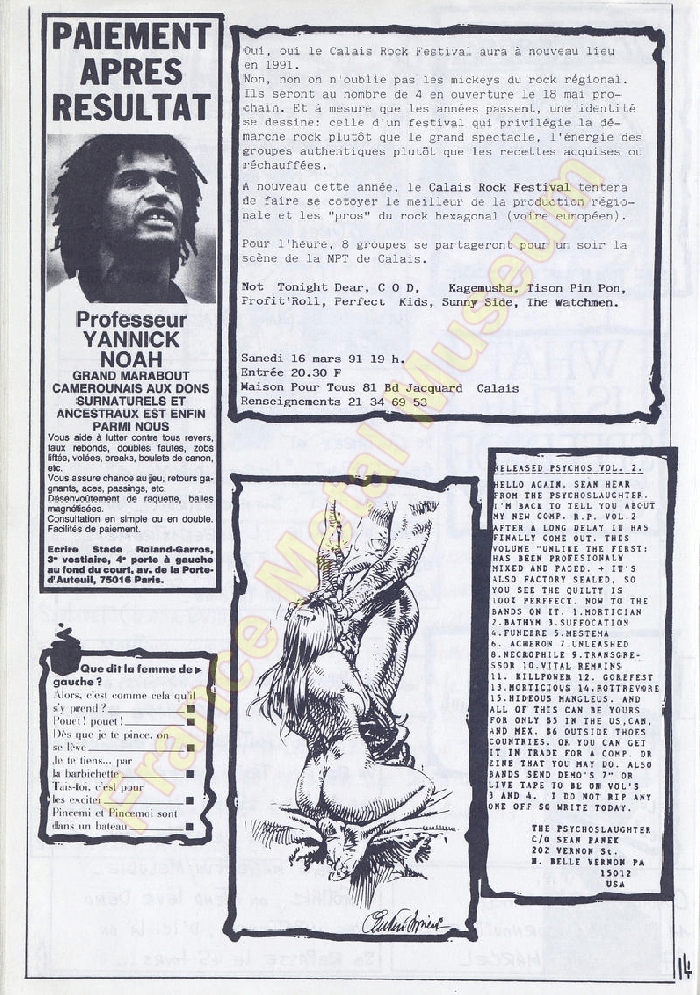 PAIEMENT
APRES
RESULTAT
Professeur
YANNICK
NOAH
GRAND MARABOUT
CAMEROUNAIS AUX DONS
SURNATURELS ET
ANCESTRAUX EST ENFIN
PARMI NOUS
Vous aide à lutter contre tous revers,
faux rebonds, doubles fautes, zobs
liftés, volées, breaks, boulets de canon,
etc.
Vous assure chance au jeu, retours ga-
gnants, aces, passings, etc.
Désenvoûtement de raquette, balles
magnétisées.
Consultation en simple ou en double.
Facilités de paiement.
Ecrire Stade Roland-Garros,
3e vestiaire, 4e porte à gauche
au fond du court, av. de la Porte-
d'Auteuil, 75016 Paris.
Oui, oui le Calais Rock Festival aura à nouveau lieu
en 1991.
Non, non on n'oublie pas les mickeys du rock régional.
Ils seront au nombre de 4 en ouverture le 18 mai pro-
chain. Et à mesure que les années passent, une identité
se dessine: celle d'un festival qui privilégie la dé-
marche rock plutôt que le grand spectacle, l'énergie des
groupes authentiques plutôt que les recettes acquises ou
réchauffées.
A nouveau cette année, le Calais Rock Festival tentera
de faire se cotoyer le meilleur de la production régio-
nale et les "pros" du rock hexagonal (voire européen).
Pour l'heure, 8 groupes se partageront pour un soir la
scène de la MPT de Calais.
Not Tonight Dear, C O D, Kagemusha, Tison Pin Pon,
Profit'Roll, Perfect Kids, Sunny Side, The Watchmen.
Samedi 16 mars 91 19 h.
Entrée 20.30 F
Maison Pour Tous 81 Bd Jacquard Calais
Renseignements 21 34 69 53
Que dit la femme de
gauche ?
Alors, c'est comme cela qu'il
s'y prend ?
Pouet ! pouet !
Dès que je te pince, on
se lève
Je te tiens... par
la barbichette
Tais-toi, c'est pour
les exciter
Pincemi et Pincemoi sont
dans un bateau
RELEASED PSYCHOS VOL. 2.
HELLO AGAIN, SEAN HEAR
FROM THE PSYCHOSLAUGHTER.
I'M BACK TO TELL YOU ABOUT
MY NEW COMP. R.P. VOL.2
AFTER A LONG DELAY IT HAS
FINALLY COME OUT. THIS
VOLUME "UNLIKE THE FIRST:
HAS BEEN PROFESIONALY
MIXED AND PACED. + IT'S
ALSO FACTORY SEALED, SO
YOU SEE THE QUILTY IS
100% PERFFECT. NOW TO THE
BANDS ON IT. 1.MORTICIAN
2.BATHYM 3.SUFFOCATION
4.FUNEBRE 5.MESTEMA
6. ACHERON 7.UNLEASHED
8.NECROPHILE 9.TRANSGRE-
SSOR 10.VITAL REMAINS
11. KILLPOWER 12. GOREFEST
13.MORTICIOUS 14.ROTTREVORE
15.HIDEOUS MANGLEUS. AND
ALL OF THIS CAN BE YOURS
FOR ONLY $5 IN THE US,CAN,
AND MEX. $6 OUTSIDE THOES
COUNTRIES. OR YOU CAN GET
IT IN TRADE FOR A COMP. OR
ZINE THAT YOU MAY DO. ALSO
BANDS SEND DEMO'S 7" OR
LIVE TAPE TO BE ON VOL'S
3 AND 4. I DO NOT RIP ANY
ONE OFF SO WRITE TODAY.
THE PSYCHOSLAUGHTER
C/O SEAN PANEK
202 VERNON St.
N. BELLE VERNON PA
15012
USA
France Metal Museum
14